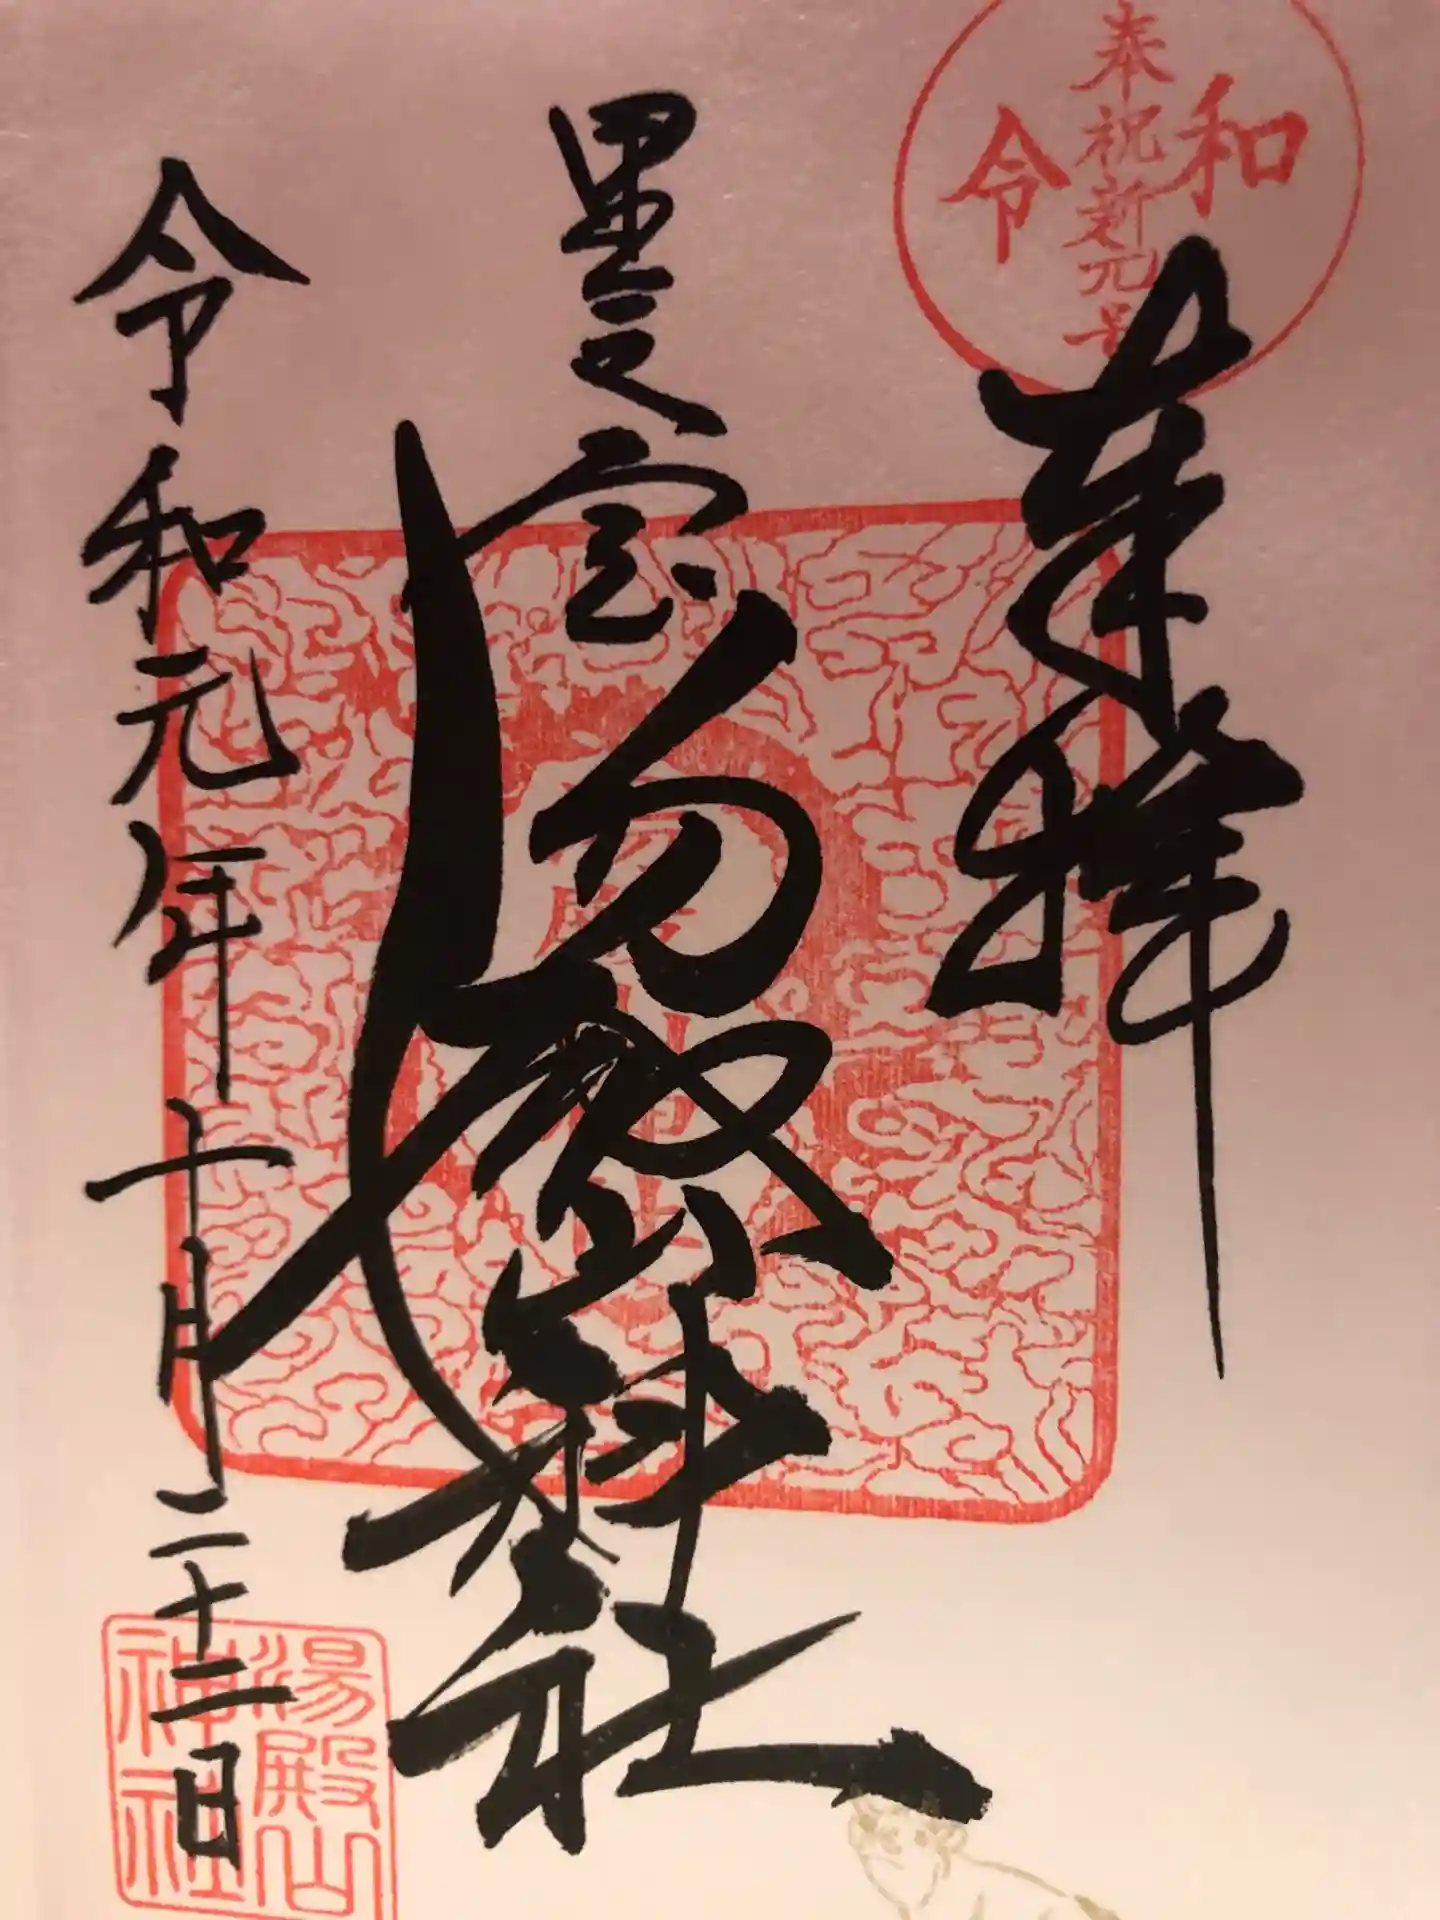 奉拝
奉祝新元号
令和
里之宮
湯殿山神社
令和元年十月二十二日
湯殿山
神社